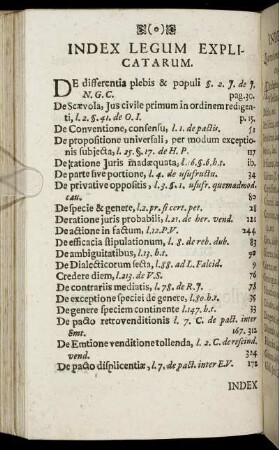 (o)
INDEX LEGUM EXPLI-
CATARUM.
DE differentia plebis & populi §. 2. J. de J.
N. G. C. pag. 30.
De Scævola, Jus civile primum in ordinem redigen-
ti, l. 2. §. 41. de O. I. p. 15.
De Conventione, consensu, l. 1. de pactis. 51
De propositione universali, per modum exceptio-
nis subjecta, l. 25. §. 17. de H. P. 117
De ratione Juris inadæquata, l. 6. §. 6. h. t. ib.
De parte sive portione, l. 4. de usufructu. 34
De privative oppositis, l. 3. §. 1. usufr. quemadmod.
cau. 80
De specie & genere, l. 2. pr. si cert. pet. 28
De ratione juris probabili, l. 21. de her. vend. 121
De actione in factum, l. 12. P. V. 244
De efficacia stipulationum, l. 8. de reb. dub. 83
De ambiguitatibus, l. 13. h. t. 98
De Dialecticorum secta, l. 88. ad L. Falcid. 9
Credere diem, l. 213. de V. S. 76
De contrariis mediatis, l. 78. de R. J. 78
De exceptione speciei de genere, l. 80. h. t. 35
De genere speciem continente l. 147. h. t. 33
De pacto retrovenditionis l. 7. C. de pact. inter
Emt. 167. 312
De Emtione venditione tollenda, l. 2. C. de rescind.
vend. 324
De pacto displicentiæ, l. 7. de pact. inter E. V. 172
INDEX